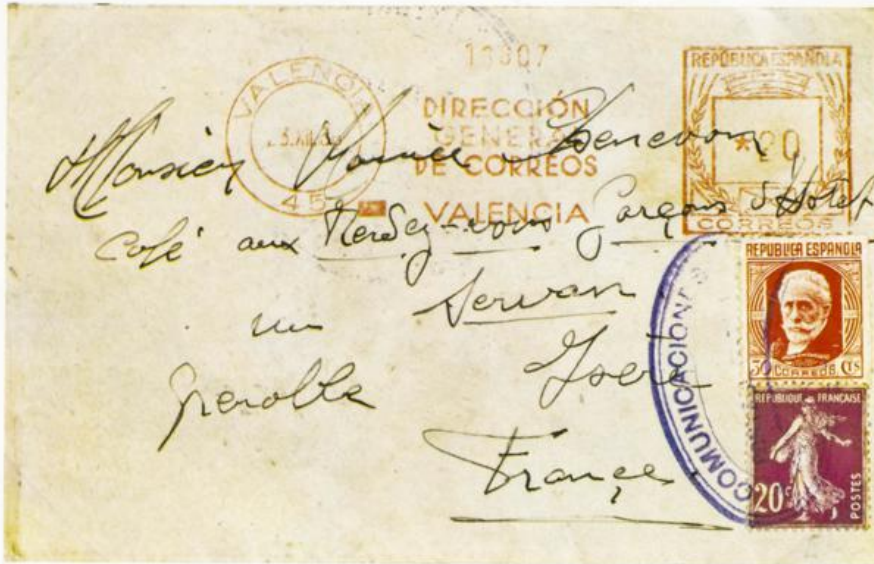 13007
VALENCIA
DIRECCIÓN
GENERAL
DE CORREOS
VALENCIA
45
REPÚBLICA ESPAÑOLA
*90
CORREOS
Monsieur
Café aux Rendez-vous Garçons d'Hotel
rue Servan
Grenoble Isère
France
COMUNICACIONES
REPUBLICA ESPAÑOLA
CORREOS
CTS
REPUBLIQUE FRANÇAISE
20c
POSTES